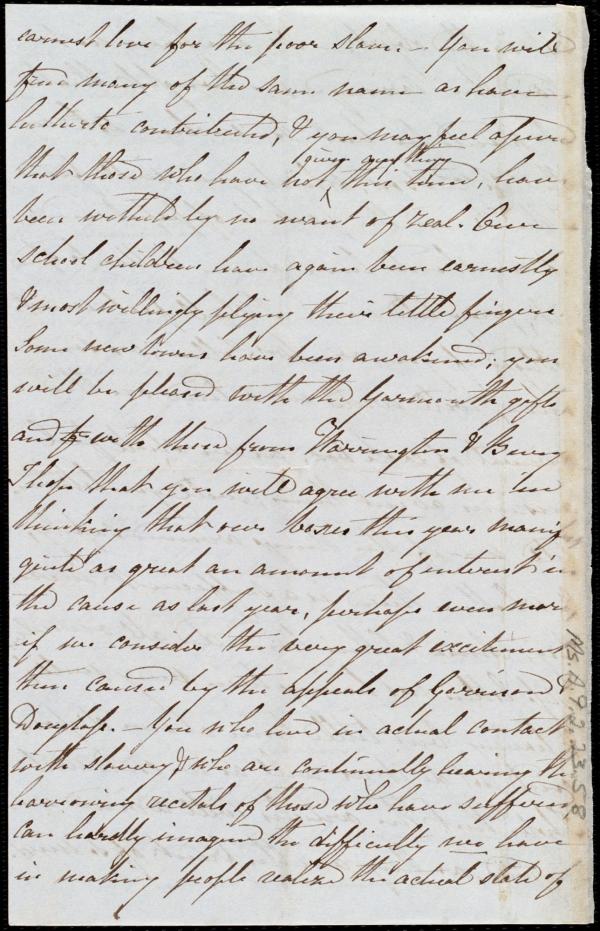 earnest love for the poor slave. – You will
find many of the same names as have
hitherto contributed, & you may feel assured
that those who have not given anything this time, have
been withheld by no want of zeal. Our
school children have again been earnestly
& most willingly plying their little fingers
Some new towns have been awakened; you
will be pleased with the Yarmouth gifts
and with those from Warrington & Bury
I hope that you will agree with me in
thinking that our boxes this year manif
quite as great an amount of interest in
the cause as last year, perhaps even more
if we consider the very great excitement
then caused by the appeals of Garrison &
Douglass. – You who live in actual contact
with slavery & who are continually hearing the
harrowing recitals of those who have suffered
can hardly imagine the difficulty we have
in making people realize the actual state of
Ms. A.9.2.23.58